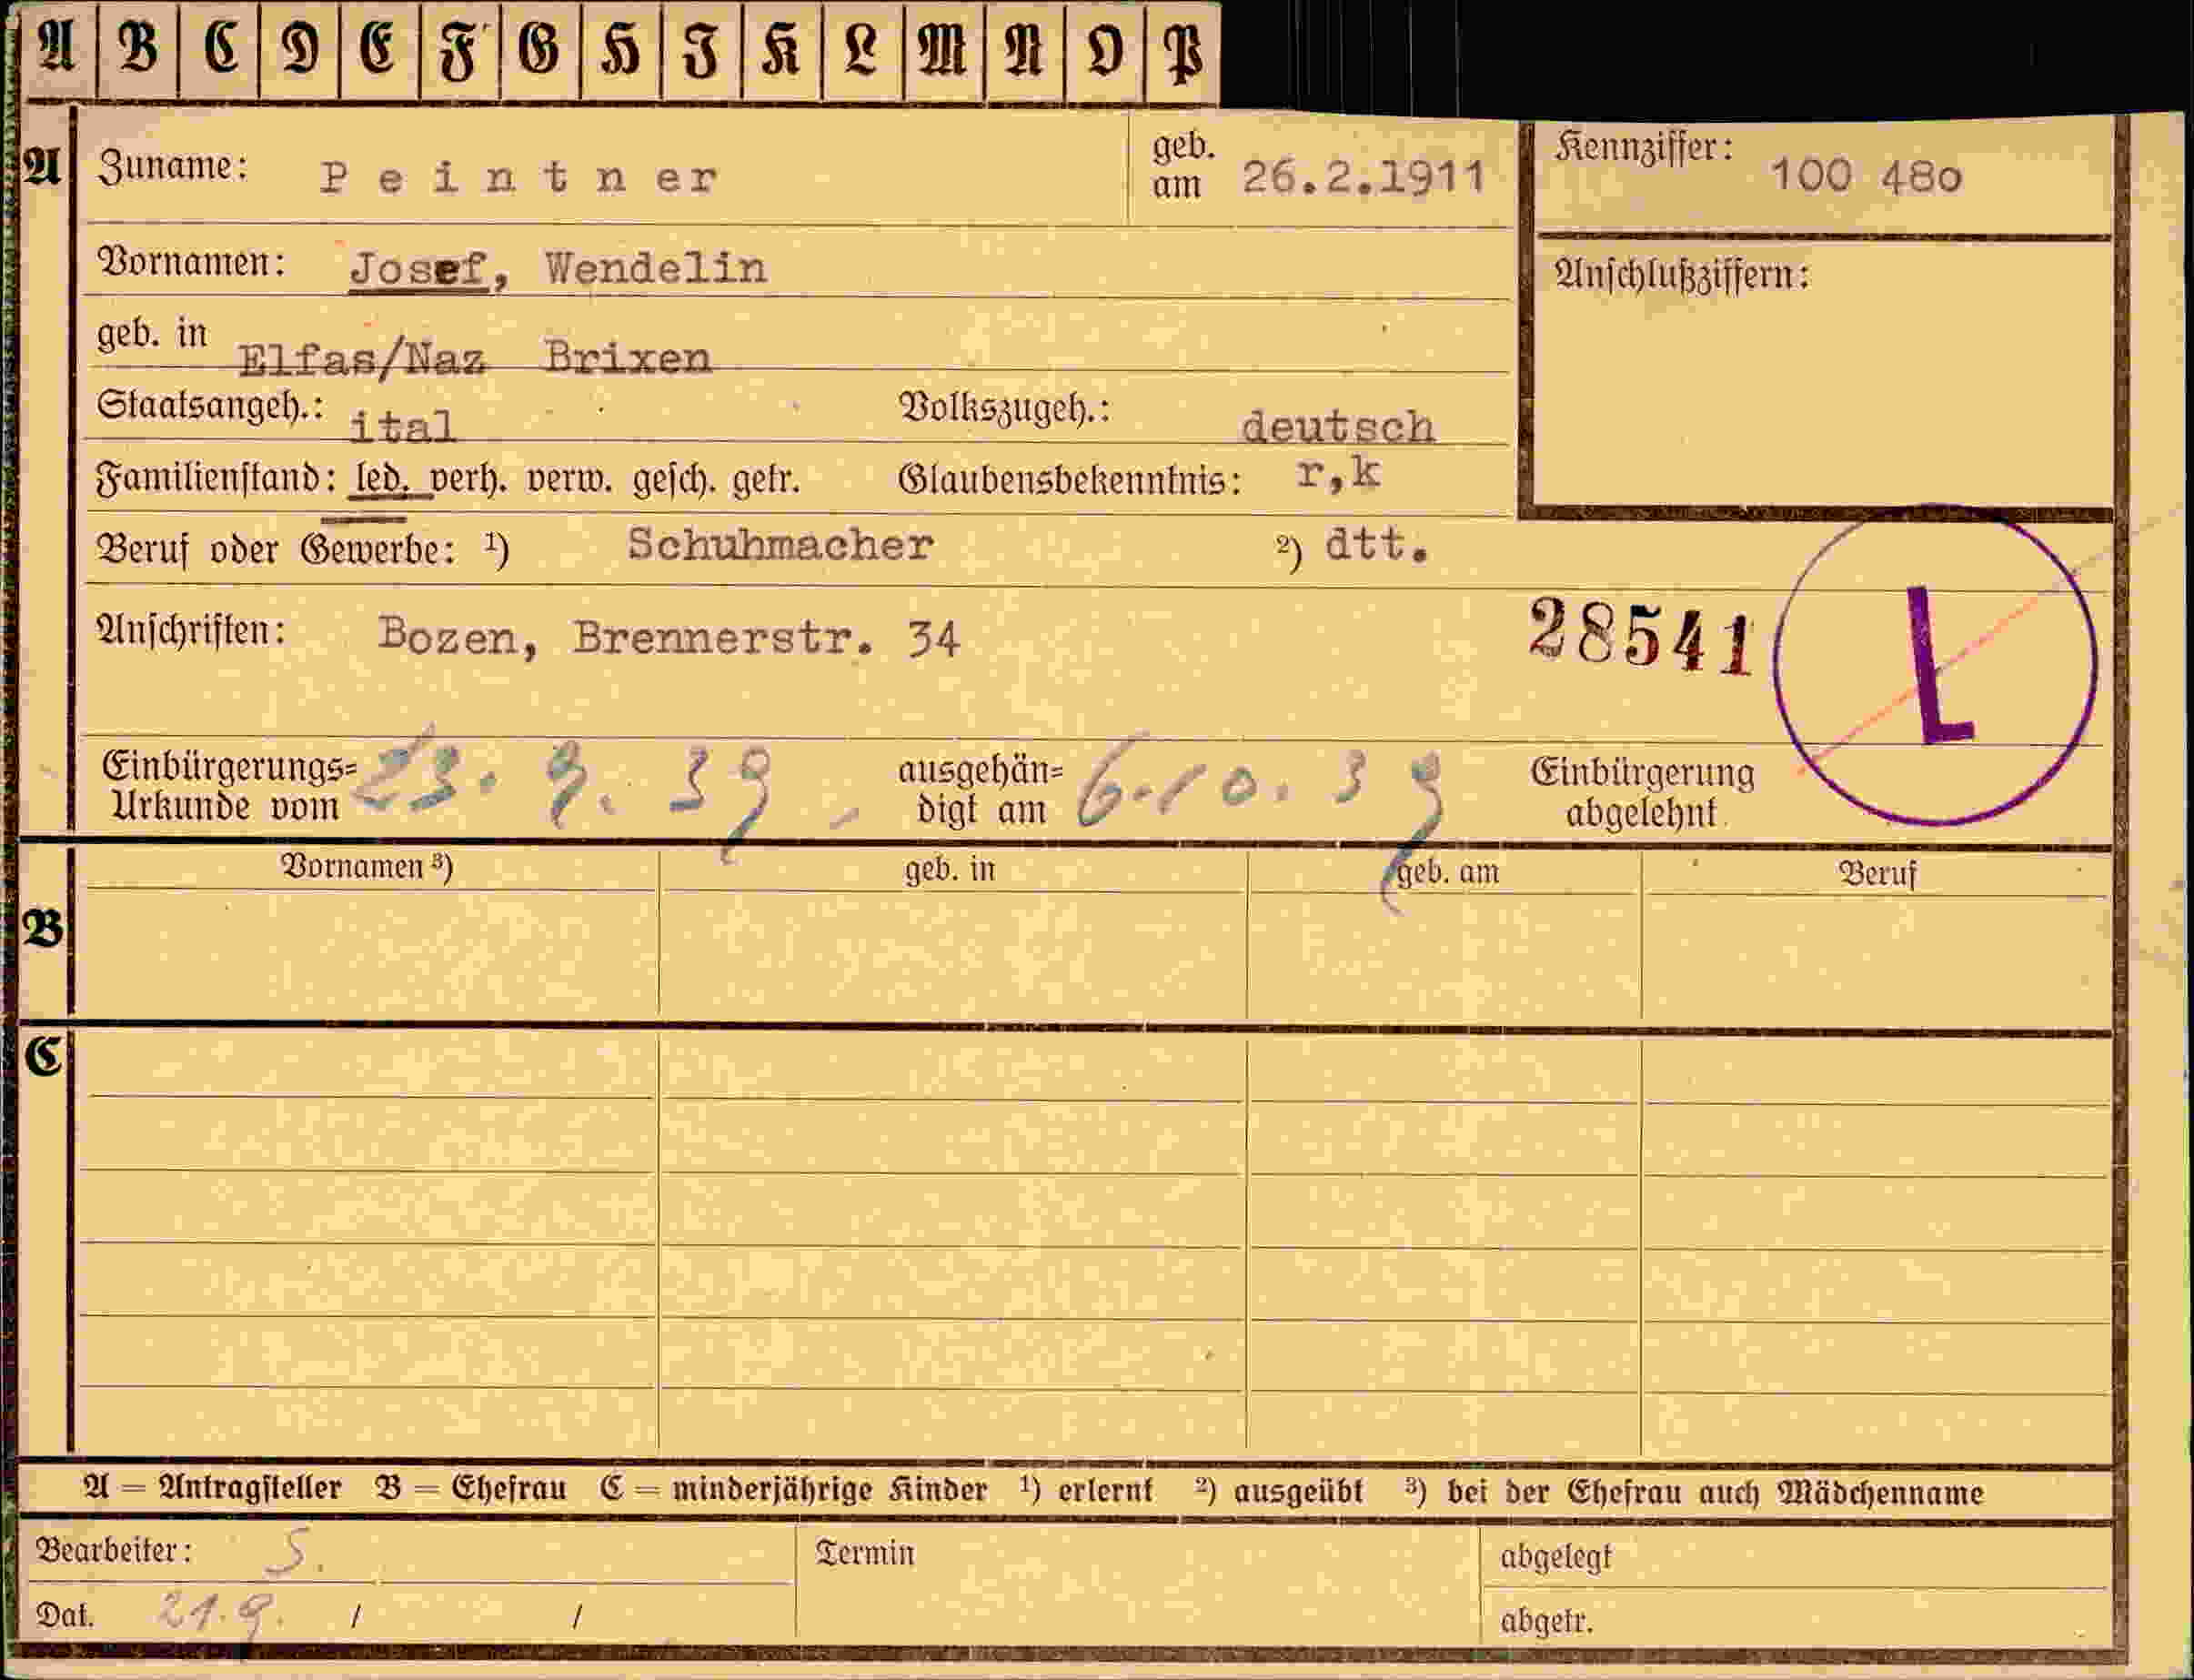 A B C D E F G H I K L M N O P
A Zuname: Peintner geb. am 26.2.1911 Kennziffer: 100 480
Vornamen: Josef, Wendelin Anschlußziffern:
geb. in Elfas/Naz Brixen
Staatsangeh.: ital Volkszugeh.: deutsch
Familienstand: led. verh. verw. gesch. getr. Glaubensbekenntnis: r,k
Beruf oder Gewerbe: ¹) Schuhmacher ²) dtt.
Anschriften: Bozen, Brennerstr. 34 28541 L
Einbürgerungs= Urkunde vom 23. 9. 39. ausgehän= digt am 6.10.39 Einbürgerung abgelehnt
Vornamen ³) geb. in geb. am Beruf
B
C
A = Antragsteller B = Ehefrau C = minderjährige Kinder ¹) erlernt ²) ausgeübt ³) bei der Ehefrau auch Mädchenname
Bearbeiter: S. Termin abgelegt
Dat. 21.9. / / abgetr.